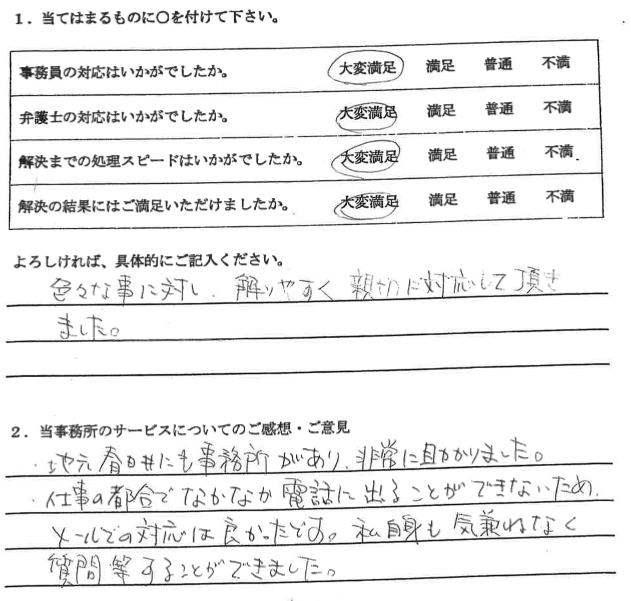 1．当てはまるものに〇を付けて下さい。
事務員の対応はいかがでしたか。 大変満足 満足 普通 不満
弁護士の対応はいかがでしたか。 大変満足 満足 普通 不満
解決までの処理スピードはいかがでしたか。 大変満足 満足 普通 不満
解決の結果にはご満足いただけましたか。 大変満足 満足 普通 不満
よろしければ、具体的にご記入ください。
色々な事に対し、解りやすく親切に対応して頂き
ました。
2．当事務所のサービスについてのご感想・ご意見
・地元春日井にも事務所があり、非常に助かりました。
・仕事の都合でなかなか電話に出ることができないため、
メールでの対応は良かったです。私自身も気兼ねなく
質問等することができました。